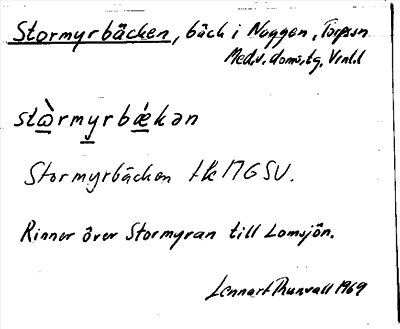 Stormyrbäcken, bäck i Naggen, Torpsn
Med.v. doms,tg, Vrnl.l
stàrmyrbǽkən
Stormyrbäcken tk 17G SV.
Rinner över Stormyran till Lomsjön.
Lennart Thunvall 1969